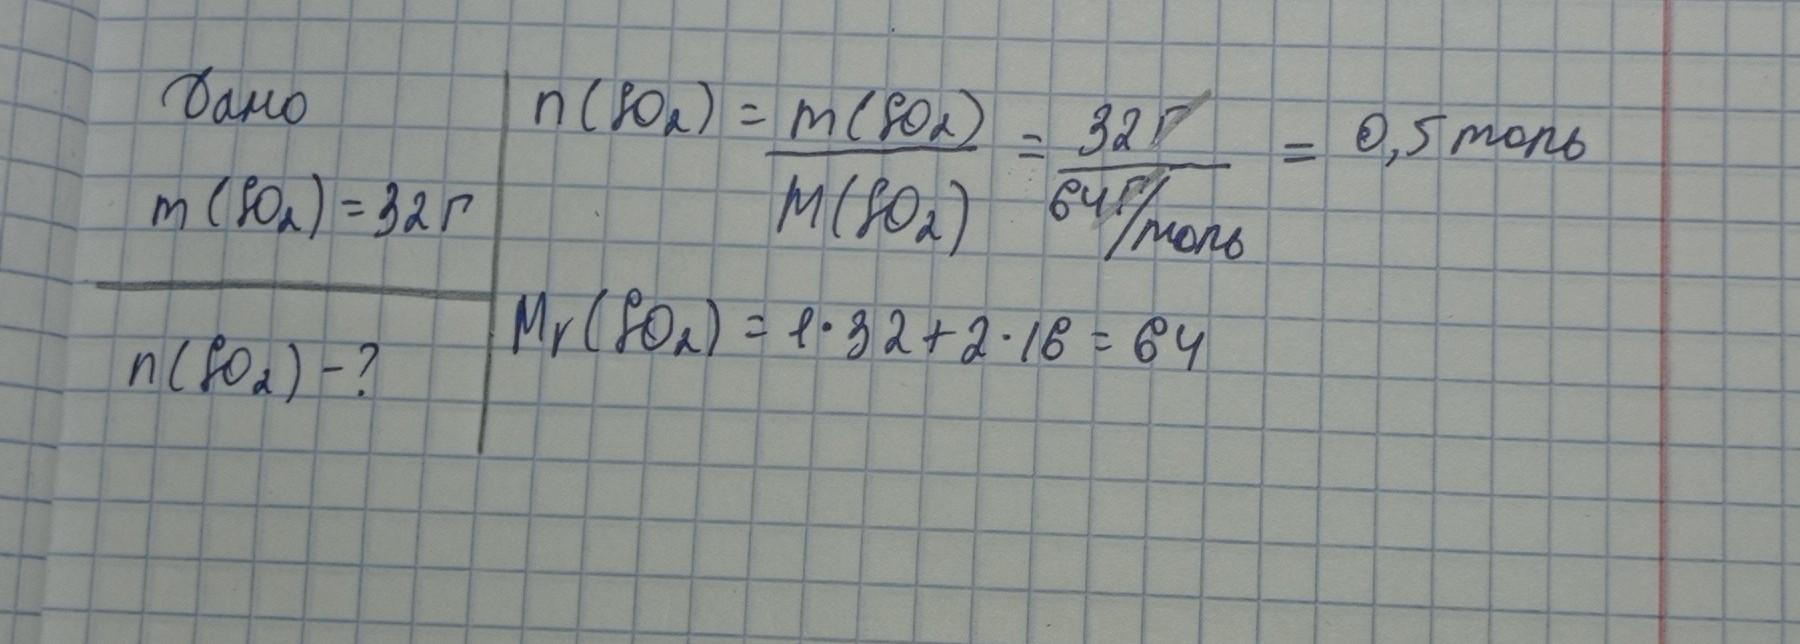 Дано
m(SO₂) = 32г
n(SO₂) - ?
n(SO₂) = m(SO₂) / M(SO₂) = 32г / 64г/моль = 0,5 моль
Mr(SO₂) = 1·32+2·16 = 64